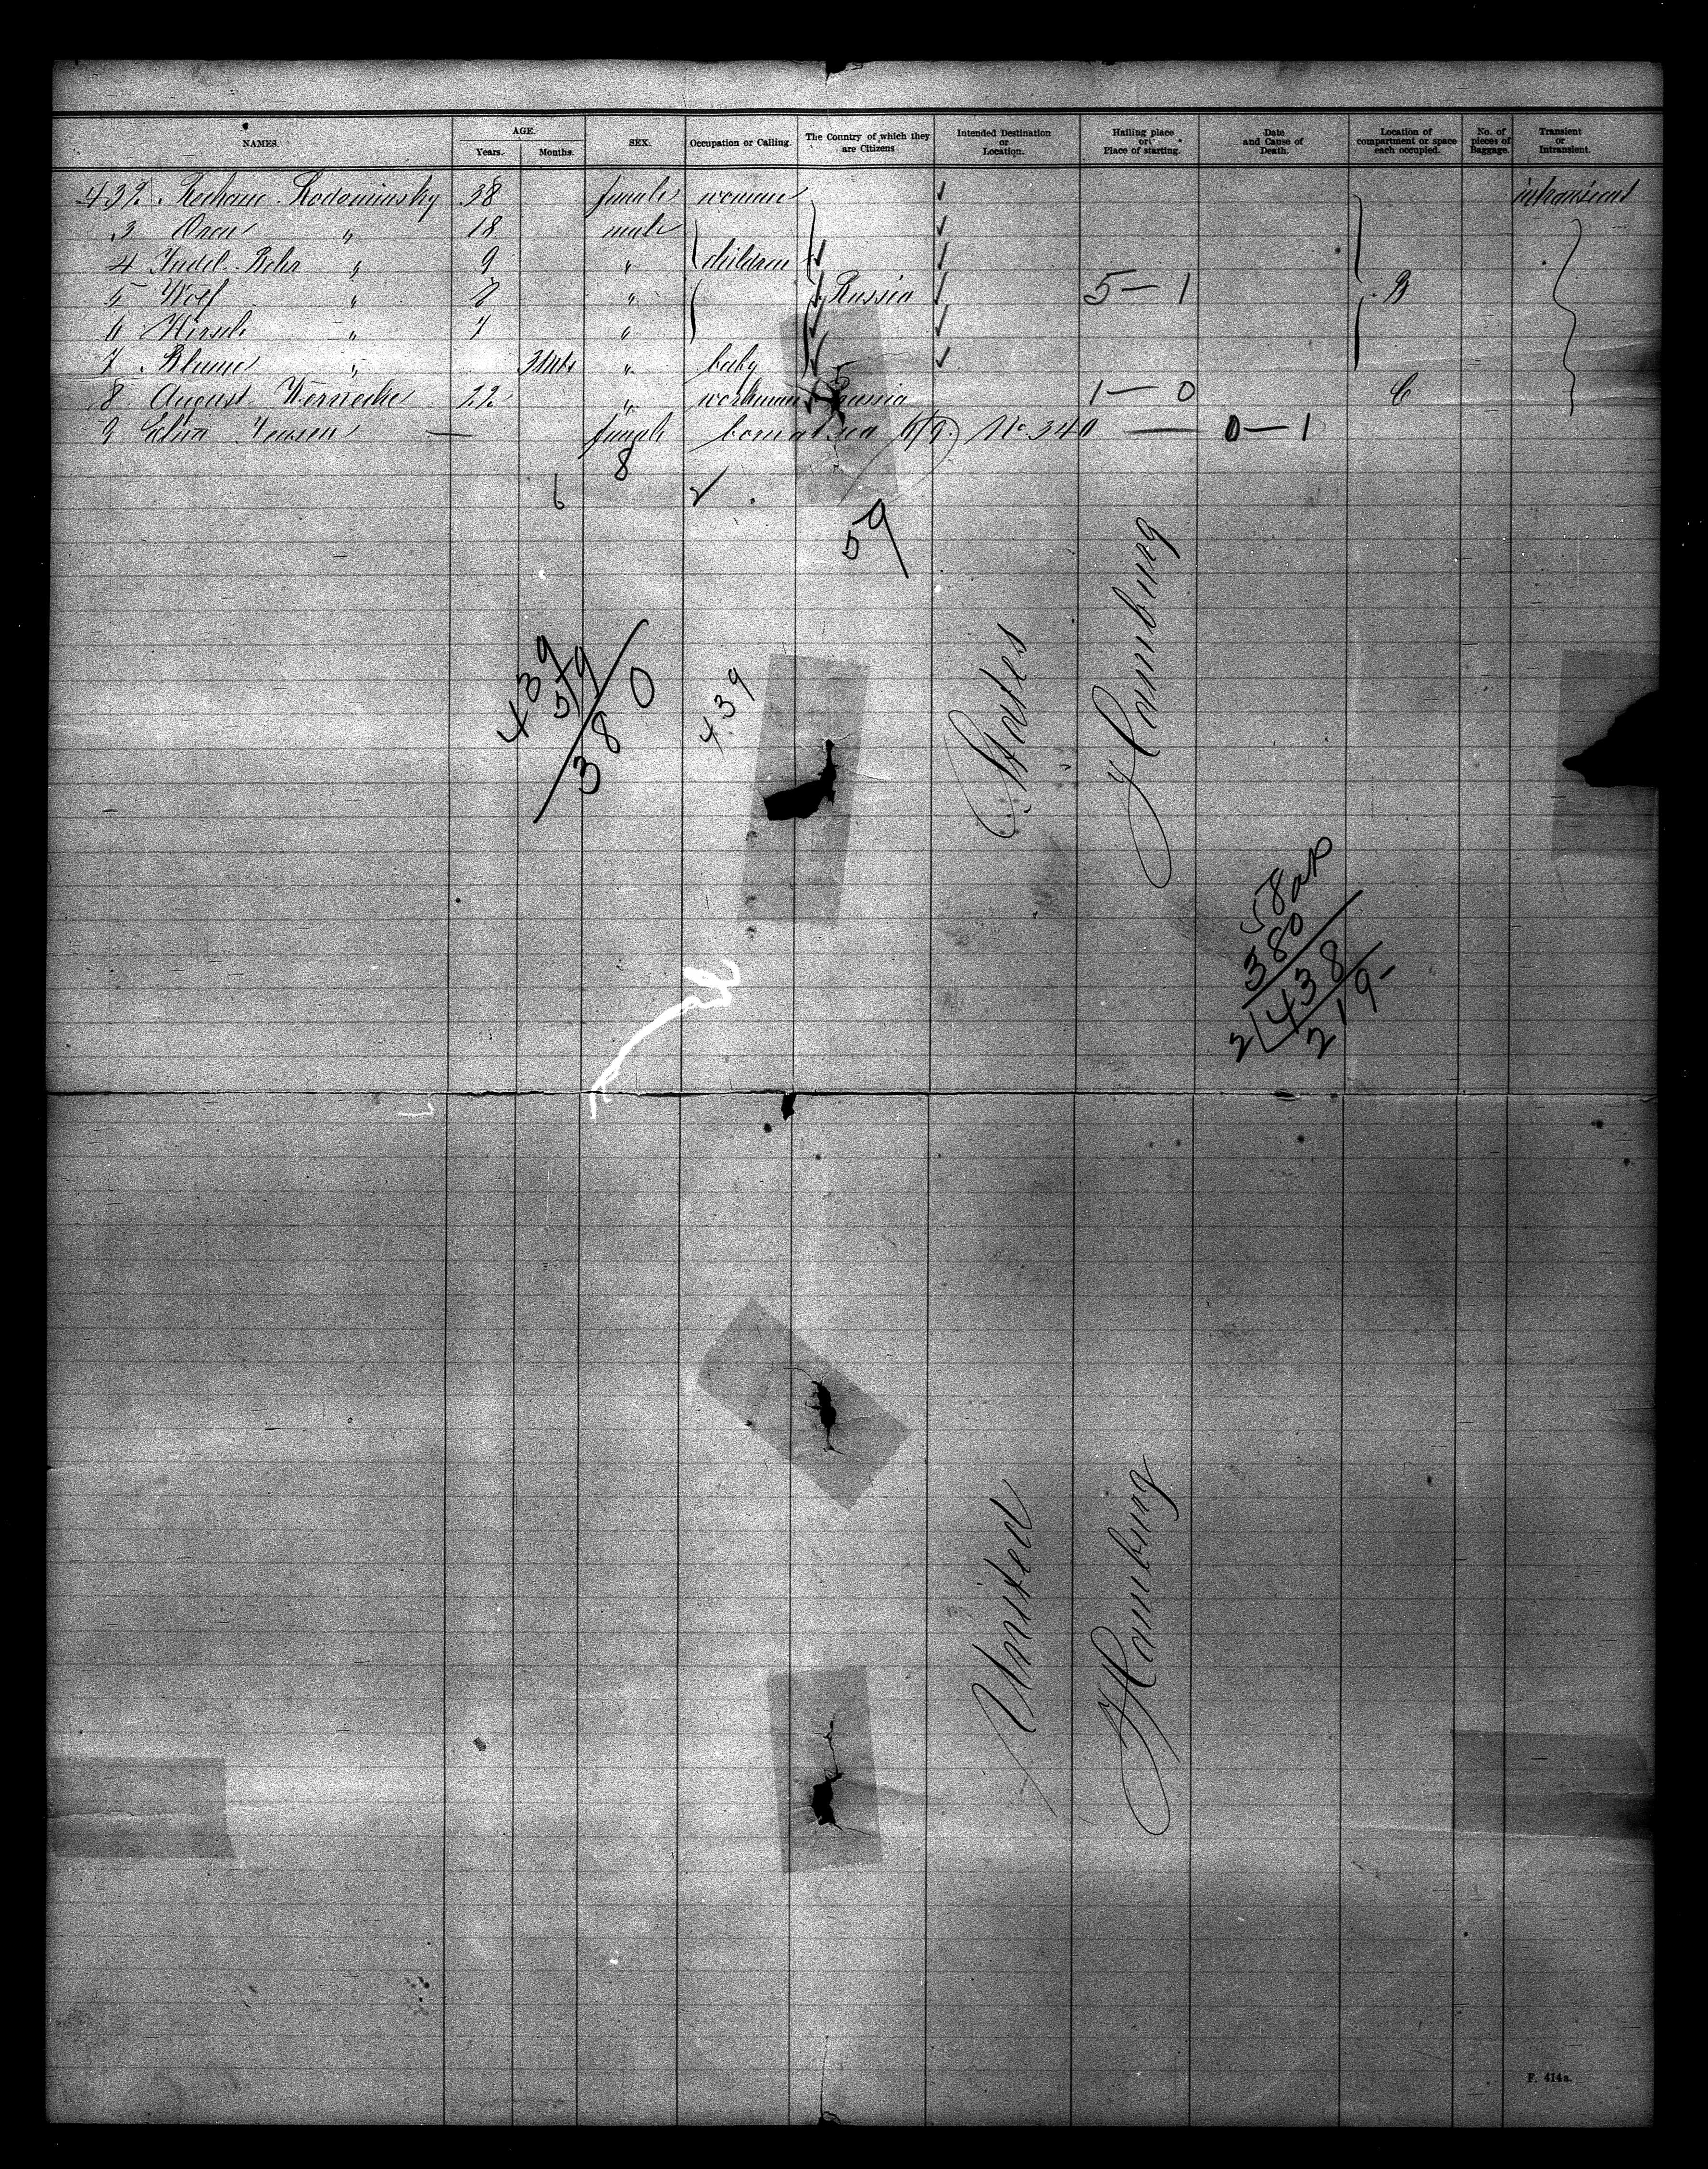 NAMES. AGE. Years. Months. SEX. Occupation or Calling. The Country of which they are Citizens Intended Destination or Location. Hailing place or Place of starting. Date and Cause of Death. Location of compartment or space each occupied. No. of pieces of Baggage. Transient or Intransient.
432 Rodominsky 38 female woman intransient
3 " 18 male
4 Judel Behr " 9 " children
5 Wolf " 8 " Russia 5 — 1 B
6 Hirsch " 7 "
7 Blume " 3 Mts " baby
8 August Wernecke 22 " workman 1 — 0 C
9 Elisa Jensen — female born at sea No 340 — 0 — 1
8
6 2
59
439
59
380
439
States
Hamburg
58
380
2 438
219
United
Hamburg
F. 414a.